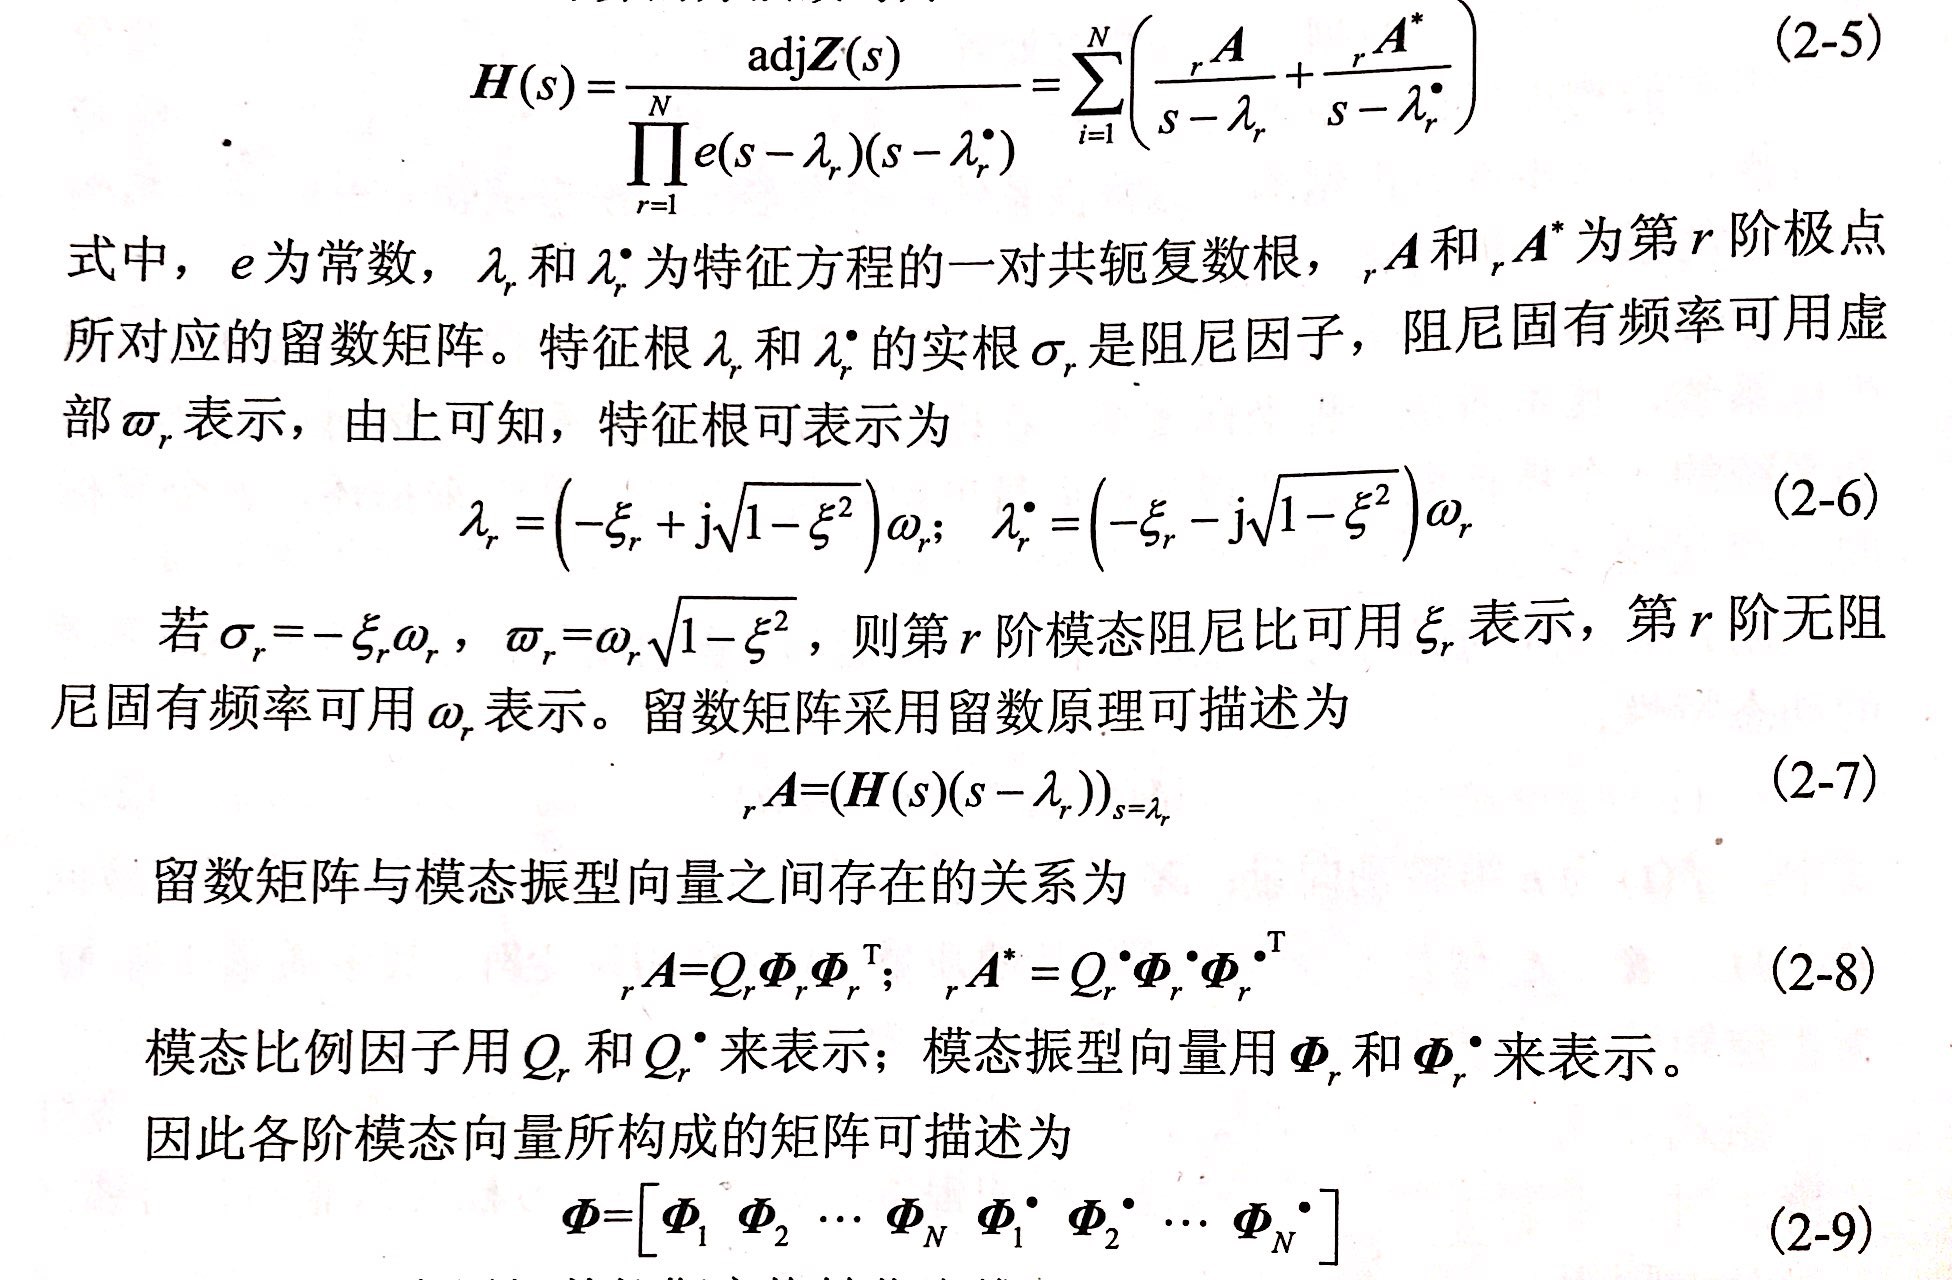 H(s) = adjZ(s) / ∏_{r=1}^{N} e(s − λ_r)(s − λ_r^•) = ∑_{i=1}^{N} ( _rA / (s − λ_r) + _rA^* / (s − λ_r^•) ) (2-5)
式中，e为常数，λ_r和λ_r^•为特征方程的一对共轭复数根，_rA和_rA^*为第r阶极点
所对应的留数矩阵。特征根λ_r和λ_r^•的实根σ_r是阻尼因子，阻尼固有频率可用虚
部ϖ_r表示，由上可知，特征根可表示为
λ_r = (−ξ_r + j√(1−ξ²))ω_r； λ_r^• = (−ξ_r − j√(1−ξ²))ω_r (2-6)
若σ_r=−ξ_rω_r，ϖ_r=ω_r√(1−ξ²)，则第r阶模态阻尼比可用ξ_r表示，第r阶无阻
尼固有频率可用ω_r表示。留数矩阵采用留数原理可描述为
_rA=(H(s)(s − λ_r))_{s=λ_r} (2-7)
留数矩阵与模态振型向量之间存在的关系为
_rA=Q_rΦ_rΦ_r^T； _rA^* = Q_r^•Φ_r^•Φ_r^{•T} (2-8)
模态比例因子用Q_r和Q_r^•来表示；模态振型向量用Φ_r和Φ_r^•来表示。
因此各阶模态向量所构成的矩阵可描述为
Φ=[Φ_1 Φ_2 ⋯ Φ_N Φ_1^• Φ_2^• ⋯ Φ_N^•] (2-9)